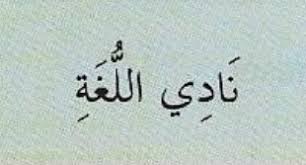 نَادِي اللُّغَةِ